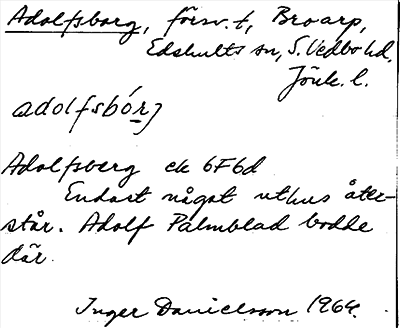 Adolfsberg, försv. t, Broarp,
Edshults sn, S. Vedbo hd,
Jönk. l.
adolfsbórj
Adolfsberg ek 6F6d
Endast något uthus åter-
står. Adolf Palmblad bodde
där.
Inger Danielsson 1964.